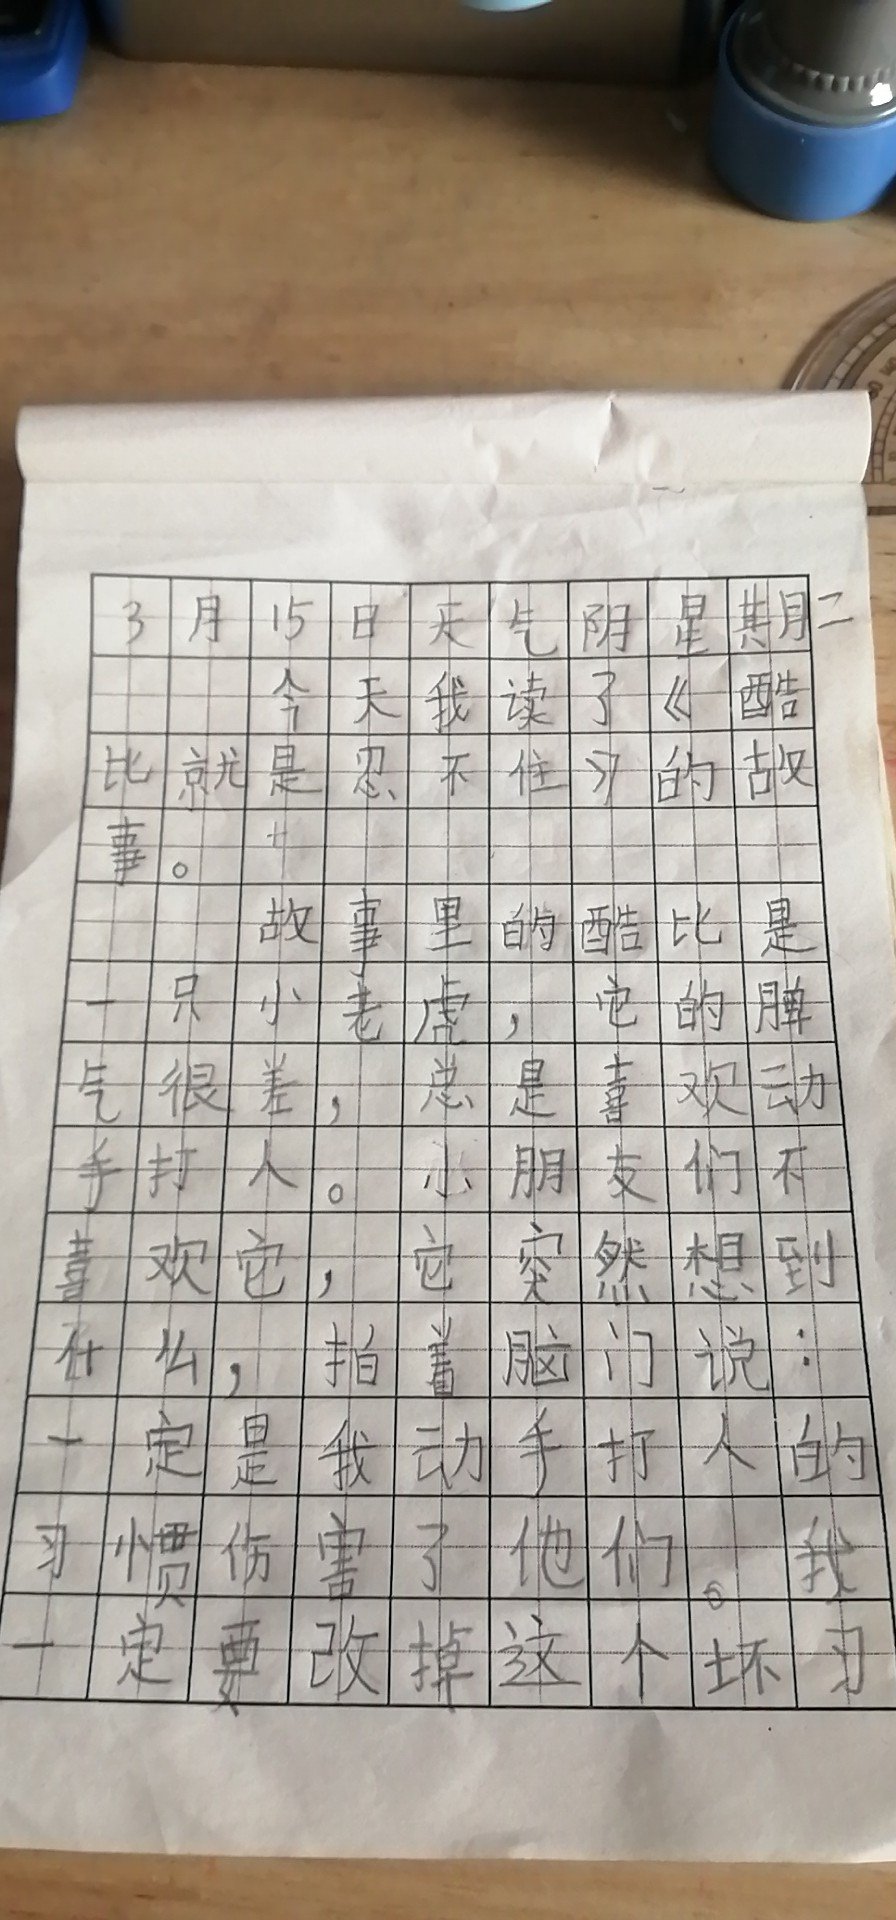 3月15日天气阴星期二
今天我读了《酷
比就是忍不住》的故
事。
故事里的酷比是
一只小老虎,它的脾
气很差,总是喜欢动
手打人。小朋友们不
喜欢它,它突然想到
什么,拍着脑门说:
一定是我动手打人的
习惯伤害了他们。我
一定要改掉这个坏习